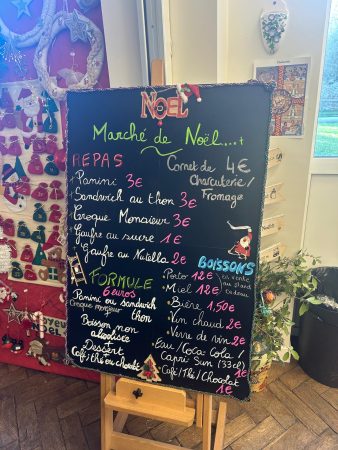 NOEL
Marché de Noël...
REPAS
Panini 3€
Sandwich au thon 3€
Croque Monsieur 3€
Gaufre au sucre 1€
Gaufre au Nutella 2€
Cornet de 4€
Charcuterie/
Fromage
FORMULE
6 euros
Panini ou sandwich
Croque monsieur thon
Boisson non
alcoolisée
Dessert
Café thé ou chocolat
BOISSONS
Porto 12€ en vente
Miel 12€ au stand
cadeau
Bière 1,50€
Vin chaud 2€
Verre de vin 2€
Eau/Coca-Cola/
Capri Sun (33cl) 1€
Café/Thé/Chocolat
1€